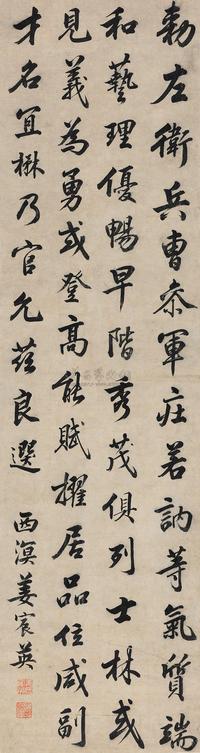 勅左衛兵曹叅軍庄若訥等氣質端
和藝理優暢早階秀茂俱列士林或
見義為勇或登高能賦擢居品位咸副
才名宜楙乃官允茲良選
西溟姜宸英